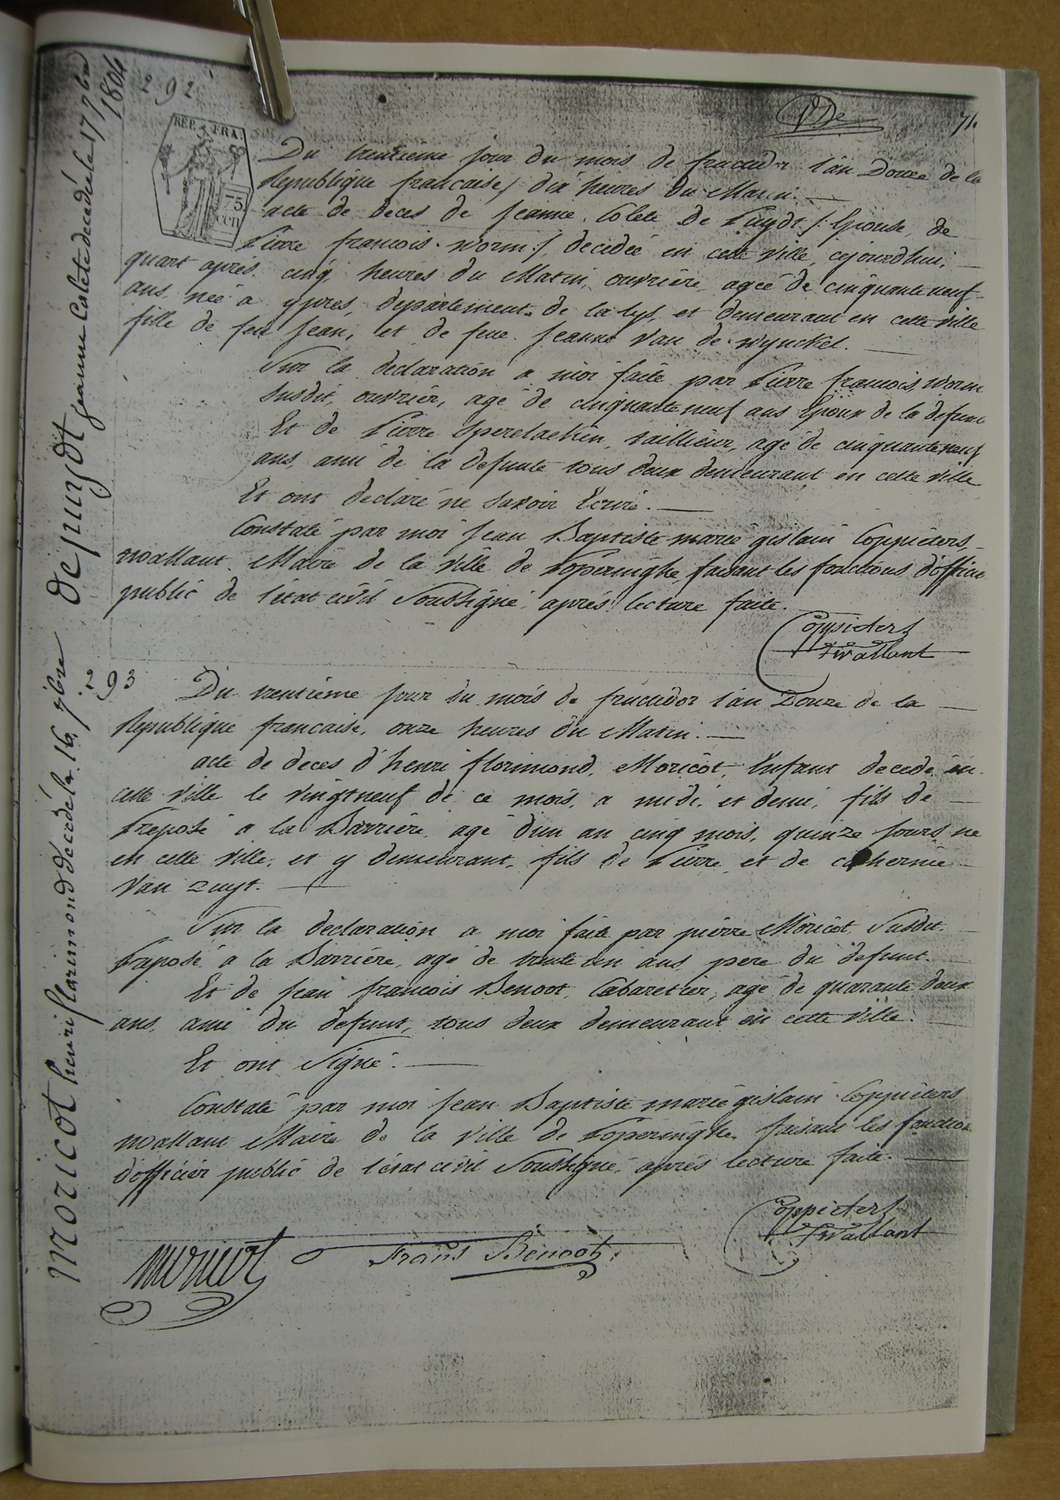 292
71.
REP. FRA.
75
Du trentieme jour du mois de fructidor l'an Douze de la
Republique francaise / dix heures du Matin. —
acte de deces de Jeanne Colete de Puydt / Epouse, de
Pierre francois worm / decedée en cette ville, cejourdhui,
quart apres cinq heures du Matin, ouvriere, ageé de cinquante neuf
ans, neé a ypres, departement de la lys, et demeurant en cette ville
fille de feu Jean, et de feue Jeanne Van de wynckel. —
Sur la declaration a moi faite par Pierre francois worm
susdit, ouvrier, agé de cinquante neuf ans Epoux de la defunte
Et de Pierre, taillieur, agé de cinquante neuf
ans, ami de la defunte tous deux demeurant en cette ville
Et ont declaré ne savoir Ecrire. —
Constaté par moi Jean Baptiste marie gislain Coppieters
wallant Maire de la ville de Poperinghe, faisant les fonctions d'officier
public de l'etat civil Soussigné, aprés lecture faite.
Coppieters
twallant
293
Du trentième jour du mois de fructidor l'an Douze de la —
Republique francaise, onze heures du Matin. —
acte de deces d'henri florimond, Moricot, Enfant decedé en
cette ville le vingt neuf de ce mois, a midi et demi, fils de —
Preposé a la Barrière, agé d'un an cinq mois, quinze jours, né
en cette ville, et y demeurant, fils de Pierre, et de catherine
Van zuyt. —
Sur la declaration a moi faite par pierre Moricot Susdit
Preposé a la Barrière, agé de trente un ans, pere du defunt
Et de jean francois Benoot, Cabaretier, agé de quarante deux
ans, ami du defunt, tous deux demeurant en cette Ville.
Et ont Signé. —
Constaté par moi Jean Baptiste marie gislain Coppieters
wallant Maire de la ville de Poperinghe, faisant les fonctions
d'officier public de l'etat civil Soussigné, aprés lecture faite. —
Coppieters
twallant
moricot
Frans Benoot
depuydt jeanne Colete decedée le 17 7bre 1804
moricot henri florimond décédé la 16 7bre